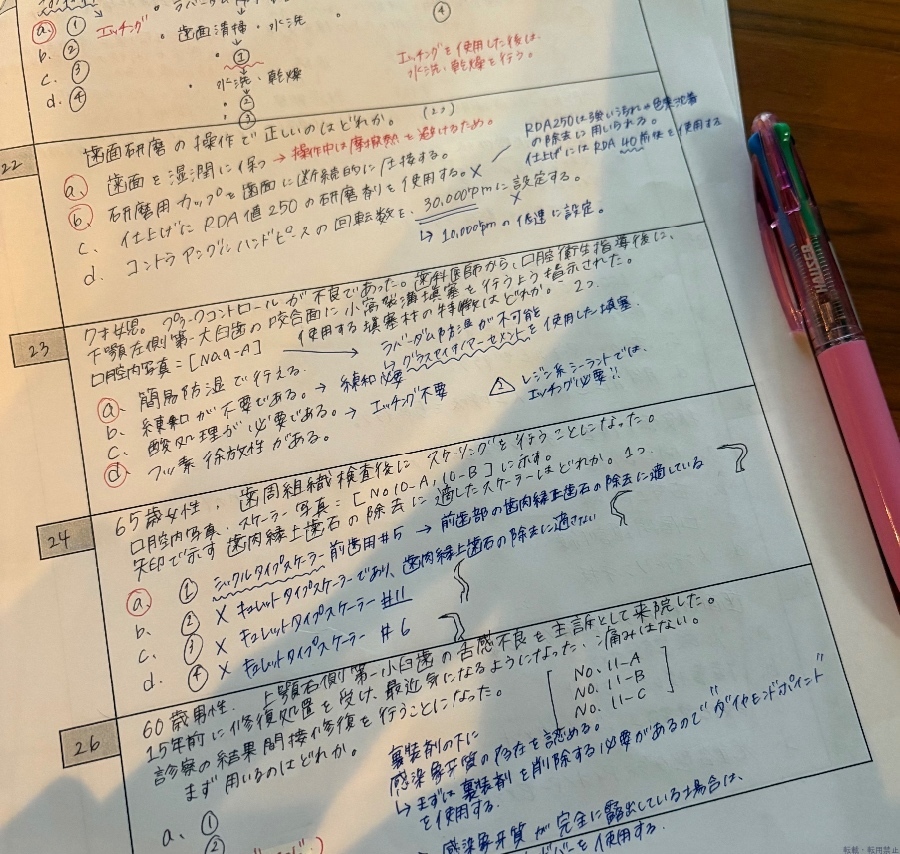 ・ラバーダム
a. ① エッチング ・歯面清掃・水洗 ・ ④
b. ② ①
c. ③ 水洗・乾燥
d. ④ ・②
③
エッチングを使用した後は、
水洗、乾燥を行う。
22 歯面研磨の操作で正しいのはどれか。(2つ)
a. 歯面を湿潤に保つ → 操作中は摩擦熱を避けるため。
b. 研磨用カップを歯面に断続的に圧接する。
c. 仕上げにRDA値250の研磨剤を使用する。×
d. コントラアングルハンドピースの回転数を、30,000rpmに設定する。
×
→ 10,000rpmの低速に設定。
RDA250は強いうちれの色素沈着
の除去に用いられる。
仕上げにはRDA 40前後を使用する
23 7才女児。プラークコントロールが不良であった。歯科医師から、口腔衛生指導後に、
下顎左側第一大臼歯の咬合面に小窩裂溝填塞を行うよう指示された。
口腔内写真=[No.9-A] 使用する填塞材の特徴はどれか。2つ
ラバーダム防湿が不可能
→ グラスアイオノマーセメントを使用した填塞
a. 簡易防湿で行える。
b. 練和が不要である。→ 練和必要
c. 酸処理が必要である。→ エッチング不要
d. フッ素徐放性がある。
⚠ レジン系シーラントでは、
エッチング必要!!
24 65歳女性、歯周組織検査後にスケーリングを行うことになった。
口腔内写真、スケーラー写真=[No10-A, 10-B]に示す。
矢印で示す歯肉縁上歯石の除去に適したスケーラーはどれか。1つ
a. ① シックルタイプスケーラー 前歯用#5 → 前歯部の歯肉縁上歯石の除去に適している
b. ② × キュレットタイプスケーラーであり、歯肉縁上歯石の除去に適さない
c. ③ × キュレットタイプスケーラー #11
d. ④ × キュレットタイプスケーラー #6
26 60歳男性、上顎右側第一小臼歯の舌感不良を主訴として来院した。
15年前に修復処置を受け、最近気になるようになった、痛みはない。
診察の結果間接修復を行うことになった。
まず用いるのはどれか。
No. 11-A
No. 11-B
No. 11-C
裏装剤の下に
感染象牙質の存在を認める。
→ まずは裏装剤を削除する必要があるので"ダイヤモンドポイント"
を使用する。
a. ①
②
感染象牙質が完全に露出している場合は、
バーを使用する。
転載・転用禁止